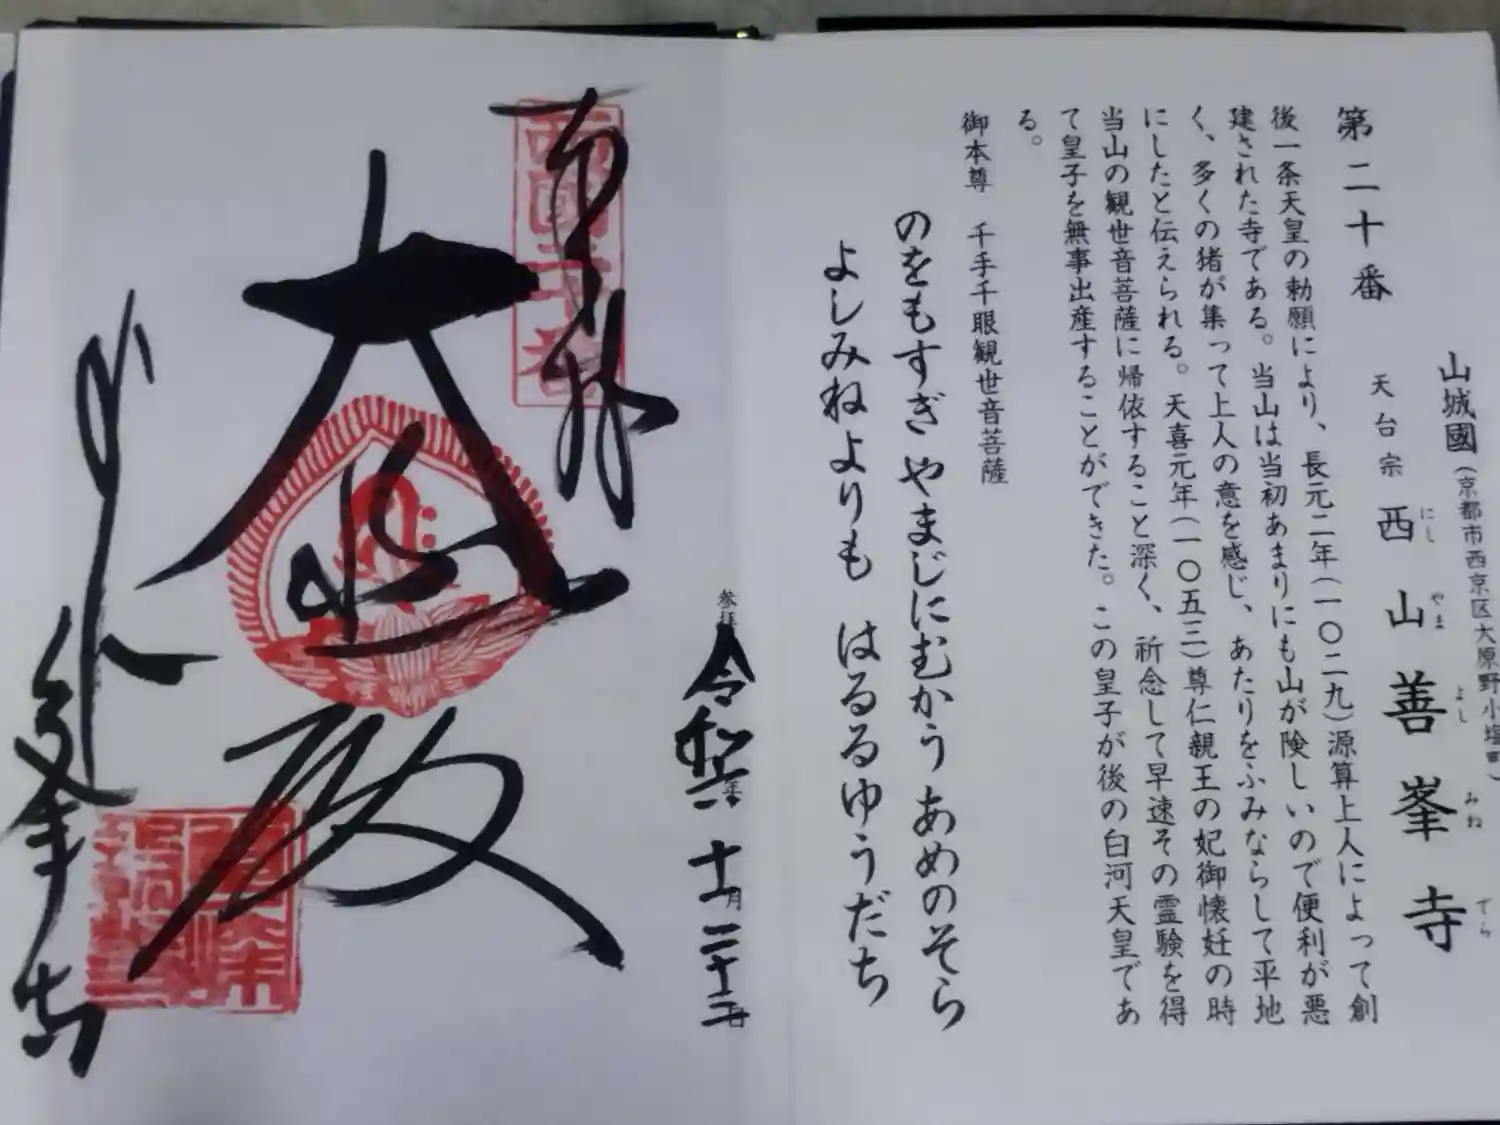 山城國(京都市西京区大原野小塩町)
天台宗 西山善峯寺
にしやまよしみねでら
第二十番
後一条天皇の勅願により、長元二年(一〇二九)源算上人によって創
建された寺である。当山は当初あまりにも山が険しいので便利が悪
く、多くの猪が集って上人の意を感じ、あたりをふみならして平地
にしたと伝えられる。天喜元年(一〇五三)尊仁親王の妃御懐妊の時
当山の観世音菩薩に帰依すること深く、祈念して早速その霊験を得
て皇子を無事出産することができた。この皇子が後の白河天皇であ
る。
御本尊 千手千眼観世音菩薩
のをもすぎ やまじにむかう あめのそら
よしみねよりも はるるゆうだち
参拝
令和六年 十一月 二十三日
奉拝
西國二十番
大悲殿
善峯寺